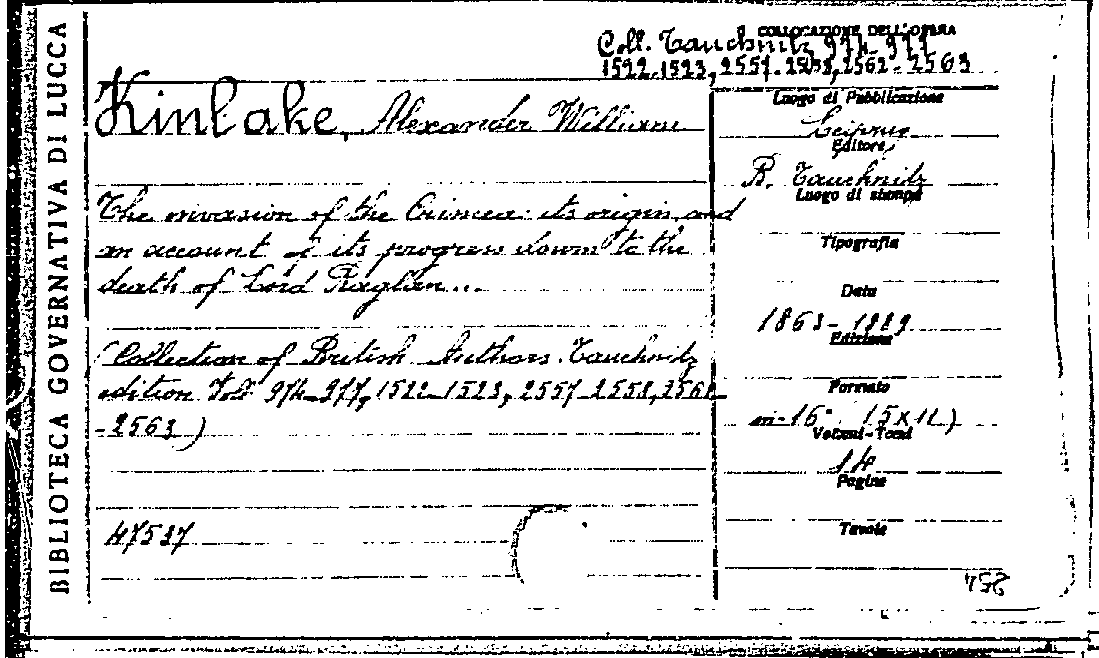 BIBLIOTECA GOVERNATIVA DI LUCCA
COLLOCAZIONE DELL'OPERA
Coll. Tauchnitz 974-977
1522-1523, 2557-2558, 2562-2563
Kinlake, Alexander William
The invasion of the Crimea: its origin, and
an account of its progress down to the
death of Lord Raglan...
(Collection of British Authors. Tauchnitz
edition Vol. 974-977, 1522-1523, 2557-2558, 2561-
-2563)
47537
Luogo di Pubblicazione
Leipzig
Editore
B. Tauchnitz
Luogo di stampa
Tipografia
Data
1863-1889
Edizione
Formato
in-16°
Volumi-Tomi
14
Pagine
Tavole